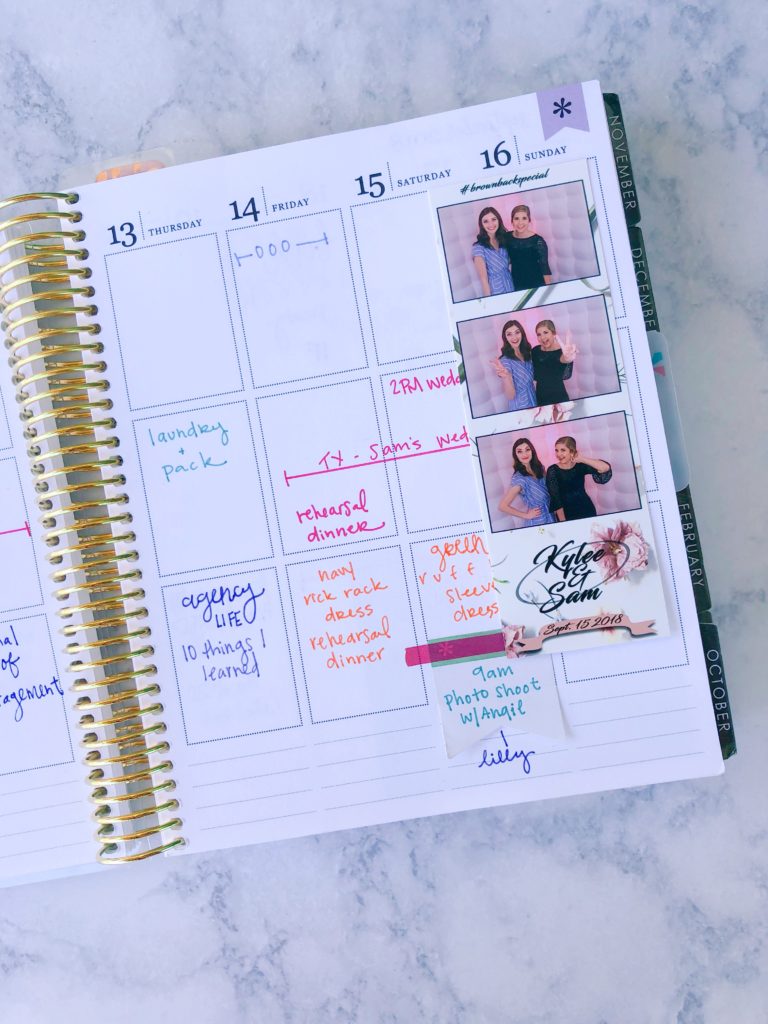 *
NOVEMBER
DECEMBER
FEBRUARY
OCTOBER
13 THURSDAY
laundry
+
pack
agency
LIFE
10 things I
learned
14 FRIDAY
OOO
TX - Sam's Wed
rehearsal
dinner
navy
rick rack
dress
rehearsal
dinner
15 SATURDAY
2PM Wedd
green
ruff
sleeve
dress
*
9am
Photo shoot
w/Angie
lilly
16 SUNDAY
#brownbackspecial
Kylee
&
Sam
Sept. 15 2018
of